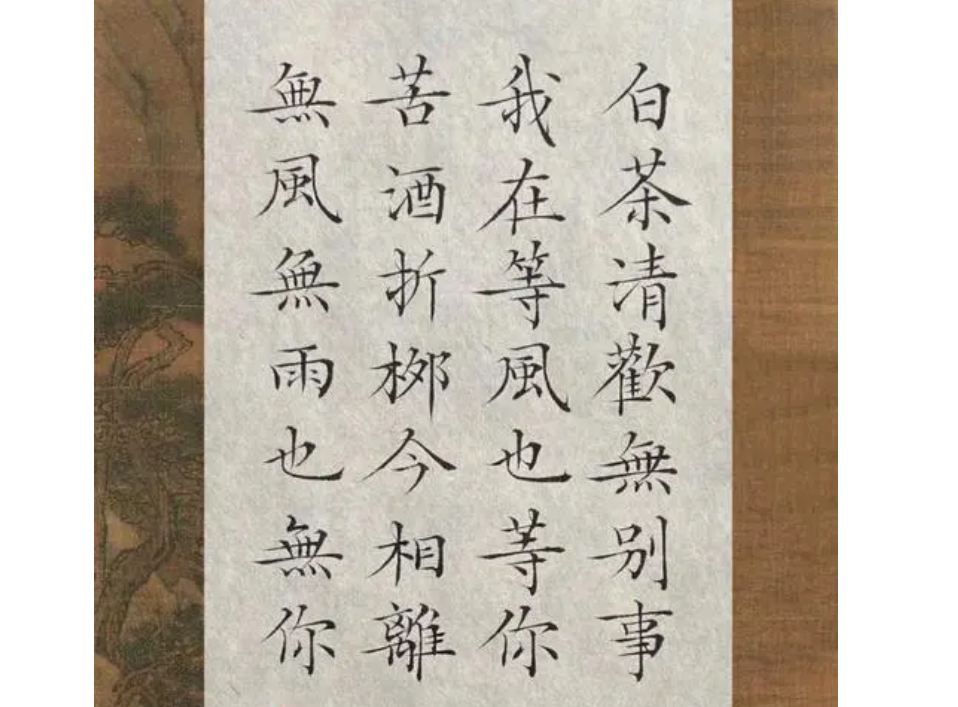 白茶清歡無別事
我在等風也等你
苦酒折柳今相離
無風無雨也無你